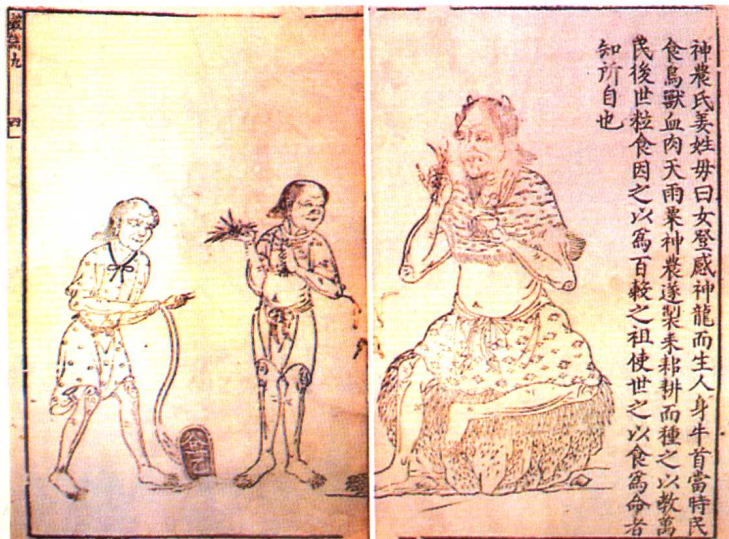 神農氏姜姓母曰女登感神龍而生人身牛首當時民
食鳥獸血肉天雨粟神農遂製耒耜耕而種之以教萬
民後世粒食因之以為百穀之祖使世之以食為命者
知所自也
四一